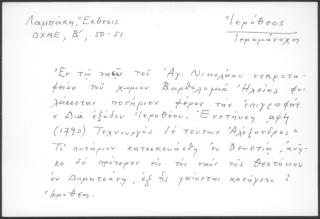 Λαμπάκη, Ἔκθεσις
ΔΧΑΕ, Β', 50-51
Ἱερόθεος
ἱερομόναχος
Ἐν τῷ ναῷ τοῦ Ἁγ. Νικολάου νεκροτα-
φείου τοῦ χωρίου Βαρθολομιὸ Ἠλείας φυ-
λάσσεται ποτήριον φέρον τὴν ἐπιγραφὴν
« Διὰ ἐξόδου Ἱεροθέου. Ἐνετίησι αψϟ
(1790) Τεχνουργὸς δὲ τούτων Ἀλέξανδρος»
Τὸ ποτήριον κατεσκευάσθη ἐν Βενετίᾳ, ἀνῆ-
κε δὲ πρότερον εἰς τὸν ναὸν τῆς Θεοτόκου
ἐν Δημητσάνῃ, ἐξ ἧς φαίνεται κατήγετο ὁ
Ἱερόθεος.